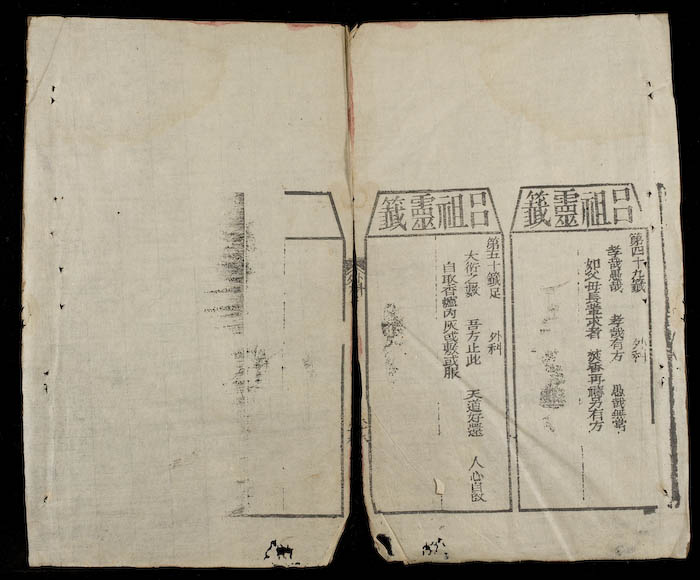 呂祖靈籤
第四十九籤 外科
孝哉愚哉 孝哉有方 愚哉無常
如父母長輩求者 焚香再禱另有方
呂祖靈籤
第五十籤足 外科
大衍之數 吾方止此 天道好還 人心自
自取香爐內灰或敷或服
外科